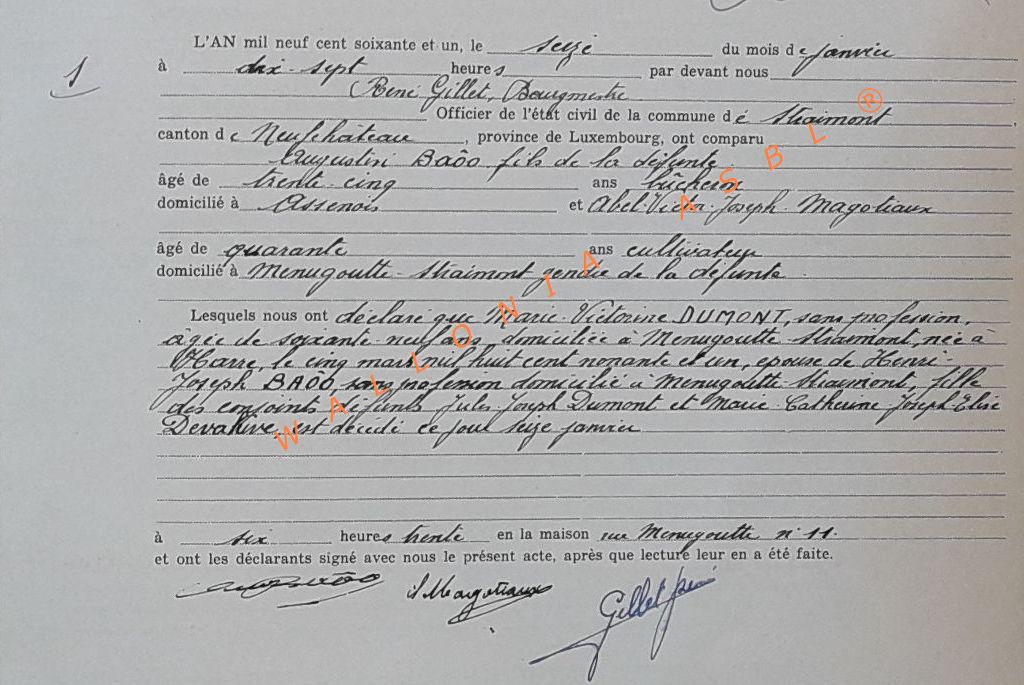 1
L'AN mil neuf cent soixante et un, le seize du mois de janvier
à dix-sept heures par devant nous
René Gillet, Bourgmestre
Officier de l'état civil de la commune dé Straimont
canton de Neufchâteau, province de Luxembourg, ont comparu
Augustin BAÔO fils de la défunte
âgé de trente-cinq ans bûcheron
domicilié à Assenois et Abel-Victor-Joseph Magotiaux
âgé de quarante ans cultivateur
domicilié à Menugoutte-Straimont gendre de la défunte
Lesquels nous ont déclaré que Marie-Victorine DUMONT, sans profession,
âgée de soixante-neuf ans, domiciliée à Menugoutte Straimont, née à
Harre, le cinq mars mil huit cent nonante et un, épouse de Henri-
Joseph BAÔO, sans profession domicilié à Menugoutte-Straimont, fille
des conjoints défunts Jules Joseph Dumont et Marie-Catherine Joseph Elise
Devahive est décédé ce jour seize janvier
à six heures trente en la maison rue Menugoutte n° 11.
et ont les déclarants signé avec nous le présent acte, après que lecture leur en a été faite.
Magotiaux
Gillet René
WALLONIA ASBL ®